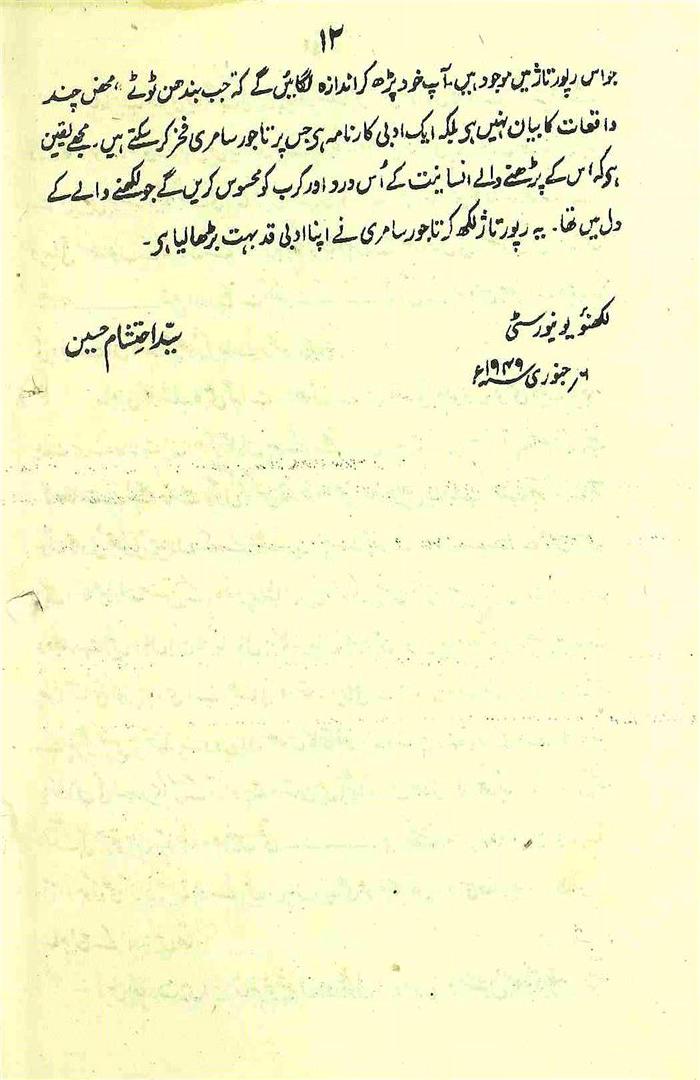 ۱۲
جو اس رپورتاژ میں موجود ہیں۔ آپ خود پڑھ کر اندازہ لگائیں گے کہ جب بندھن ٹوٹے، محض چند
واقعات کا بیان نہیں ہو بلکہ ایک ادبی کارنامہ ہو جس پر تاجور سامری فخر کر سکتے ہیں۔ مجھے یقین
ہو کہ اس کے پڑھنے والے انسانیت کے اُس درد اور کرب کو محسوس کریں گے جو لکھنے والے کے
دل میں تھا۔ یہ رپورتاژ لکھ کر تاجور سامری نے اپنا ادبی قد بہت بڑھا لیا ہو۔
لکھنؤ یونیورسٹی
سیّد احتشام حسین
۶؍ جنوری ۱۹۴۹ء